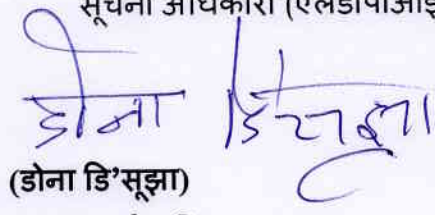 सूचना अधिकारी (एलडीपीआई
डोना डिसूझा
(डोना डि'सूझा)